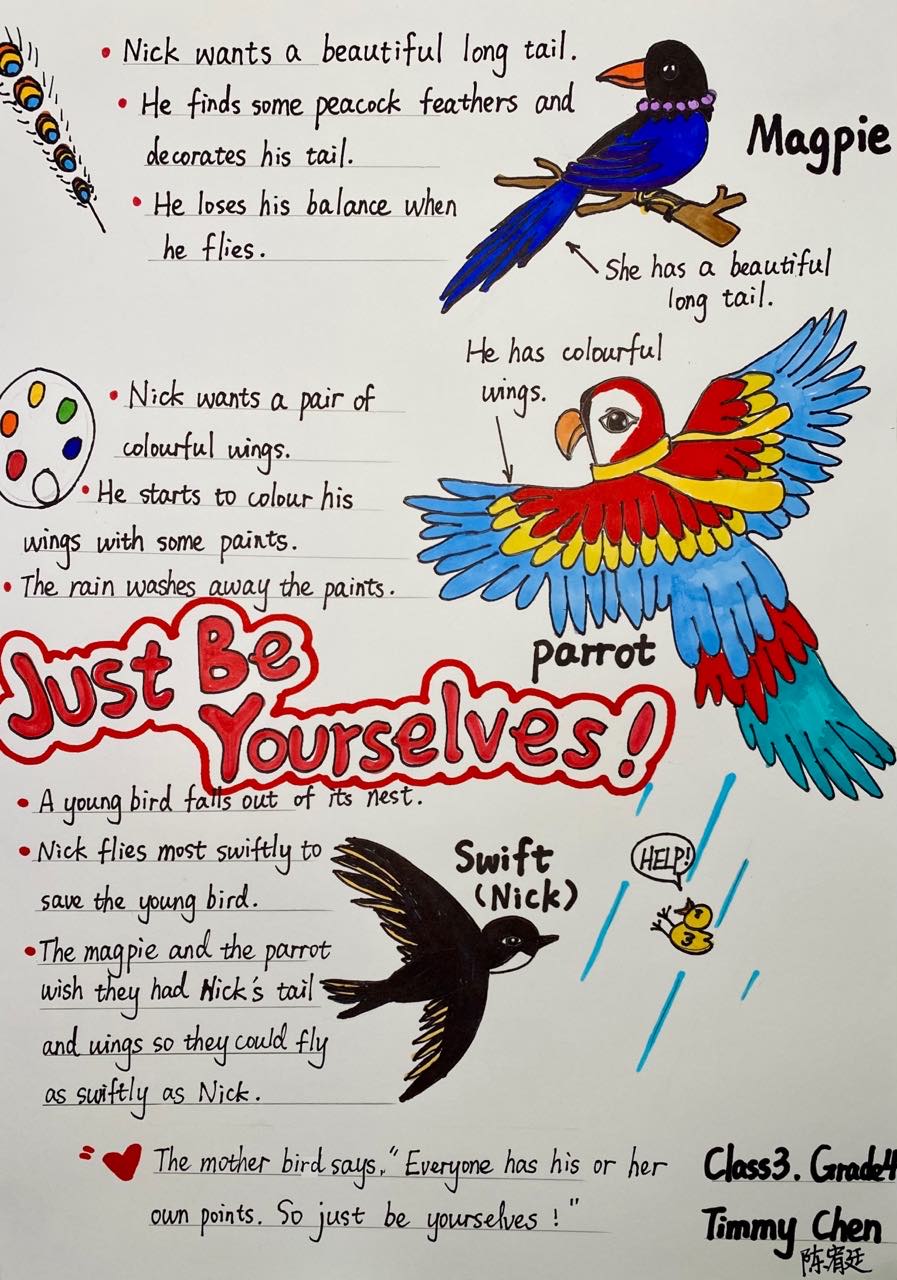 • Nick wants a beautiful long tail.
• He finds some peacock feathers and
decorates his tail.
• He loses his balance when
he flies.
Magpie
She has a beautiful
long tail.
He has colourful
wings.
• Nick wants a pair of
colourful wings.
• He starts to colour his
wings with some paints.
• The rain washes away the paints.
parrot
Just Be
Yourselves!
• A young bird falls out of its nest.
• Nick flies most swiftly to
save the young bird.
• The magpie and the parrot
wish they had Nick's tail
and wings so they could fly
as swiftly as Nick.
Swift
(Nick)
HELP!
The mother bird says, "Everyone has his or her
own points. So just be yourselves!"
Class3. Grade4
Timmy Chen
陈宥廷